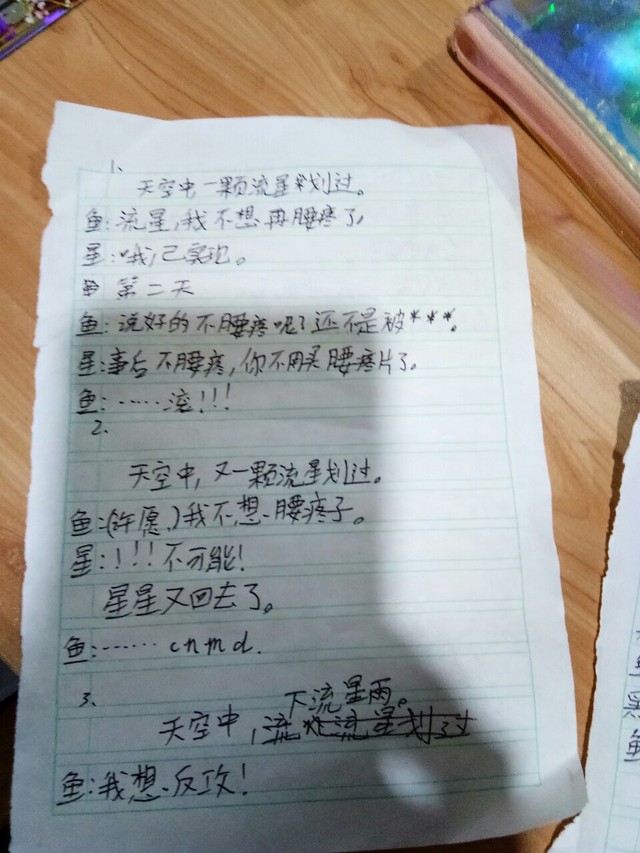 1、
天空中一颗流星划过。
鱼:流星,我不想再腰疼了,
星:哦,已实现。
第二天
鱼:说好的不腰疼呢?还不是被***。
星:事后不腰疼,你不用买腰疼片了。
鱼:……滚!!!
2.
天空中,又一颗流星划过。
鱼:(许愿)我不想腰疼了。
星:!!!不可能!
星星又回去了。
鱼:…… cnmd.
3、
下流星雨。
天空中,流 流星划过
鱼:我想反攻!
鱼